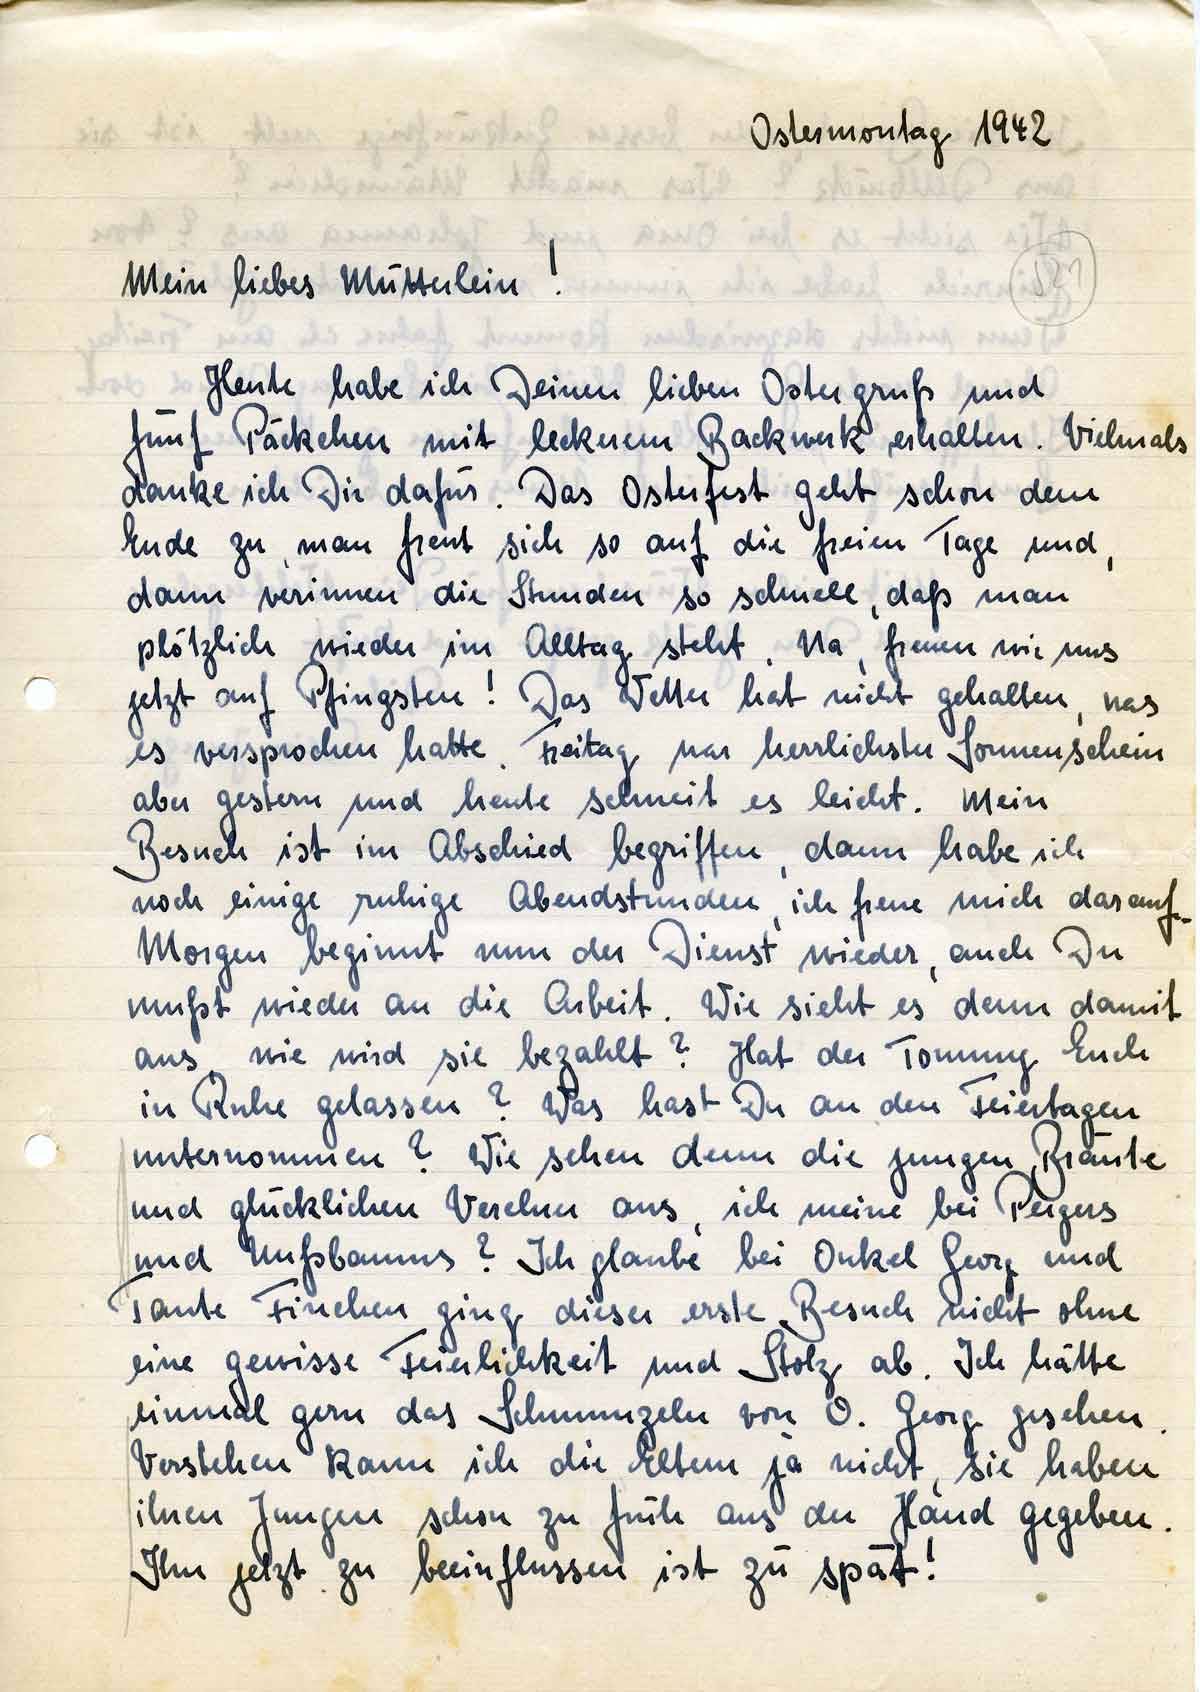 Ostermontag 1942
521
Mein liebes Mütterlein!
Heute habe ich Deinen lieben Ostergruß und
fünf Päckchen mit leckerem Backwerk erhalten. Vielmals
danke ich Dir dafür. Das Osterfest geht schon dem
Ende zu, man freut sich so auf die freien Tage und,
dann verinnen die Stunden so schnell, daß man
plötzlich wieder im Alltag steht. Na, freuen wir uns
jetzt auf Pfingsten! Das Wetter hat nicht gehalten, was
es versprochen hatte. Freitag war herrlichster Sonnenschein
aber gestern und heute schneit es leicht. Mein
Besuch ist im Abschied begriffen, dann habe ich
noch einige ruhige Abendstunden, ich freue mich darauf.
Morgen beginnt nun der Dienst wieder, auch Du
mußt wieder an die Arbeit. Wie sieht es denn damit
aus, wie wird sie bezahlt? Hat der Tommy Euch
in Ruhe gelassen? Was hast Du an den Feiertagen
unternommen? Wie sehen denn die jungen Bräute
und glücklichen Verehrer aus, ich meine bei Peigers
und Nußbaums? Ich glaube bei Onkel Georg und
Tante Finchen ging dieser erste Besuch nicht ohne
eine gewisse Feierlichkeit und Stolz ab. Ich hätte
einmal gern das Schmunzeln von O. Georg gesehen.
Verstehen kann ich die Eltern ja nicht, sie haben
ihren Jungen schon zu früh aus der Hand gegeben.
Ihn jetzt zu beeinflussen ist zu spät!